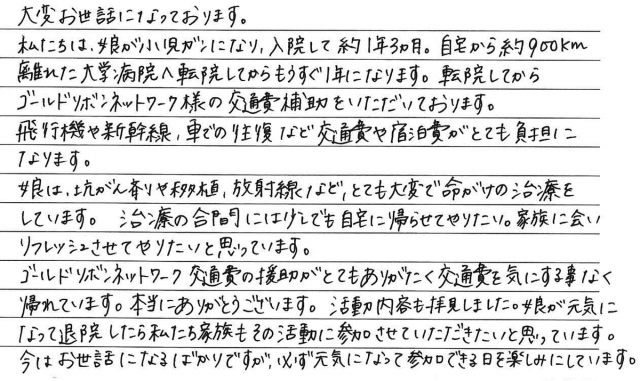 大変お世話になっております。
私たちは、娘が小児ガンになり、入院して約1年3ヵ月。自宅から約900km
離れた大学病院へ転院してからもうすぐ1年になります。転院してから
ゴールドリボンネットワーク様の交通費補助をいただいております。
飛行機や新幹線,車での往復など交通費や宿泊費がとても負担に
なります。
娘は、抗がん剤や移植,放射線など,とても大変で命がけの治療を
しています。治療の合間には少しでも自宅に帰らせてやりたい。家族に会い
リフレッシュさせてやりたいと思っています。
ゴールドリボンネットワーク交通費の援助がとてもありがたく交通費を気にする事なく
帰れています。本当にありがとうございます。活動内容も拝見しました。娘が元気に
なって退院したら私たち家族もその活動に参加させていただきたいと思っています。
今はお世話になるばかりですが,必ず元気になって参加できる日を楽しみにしています。